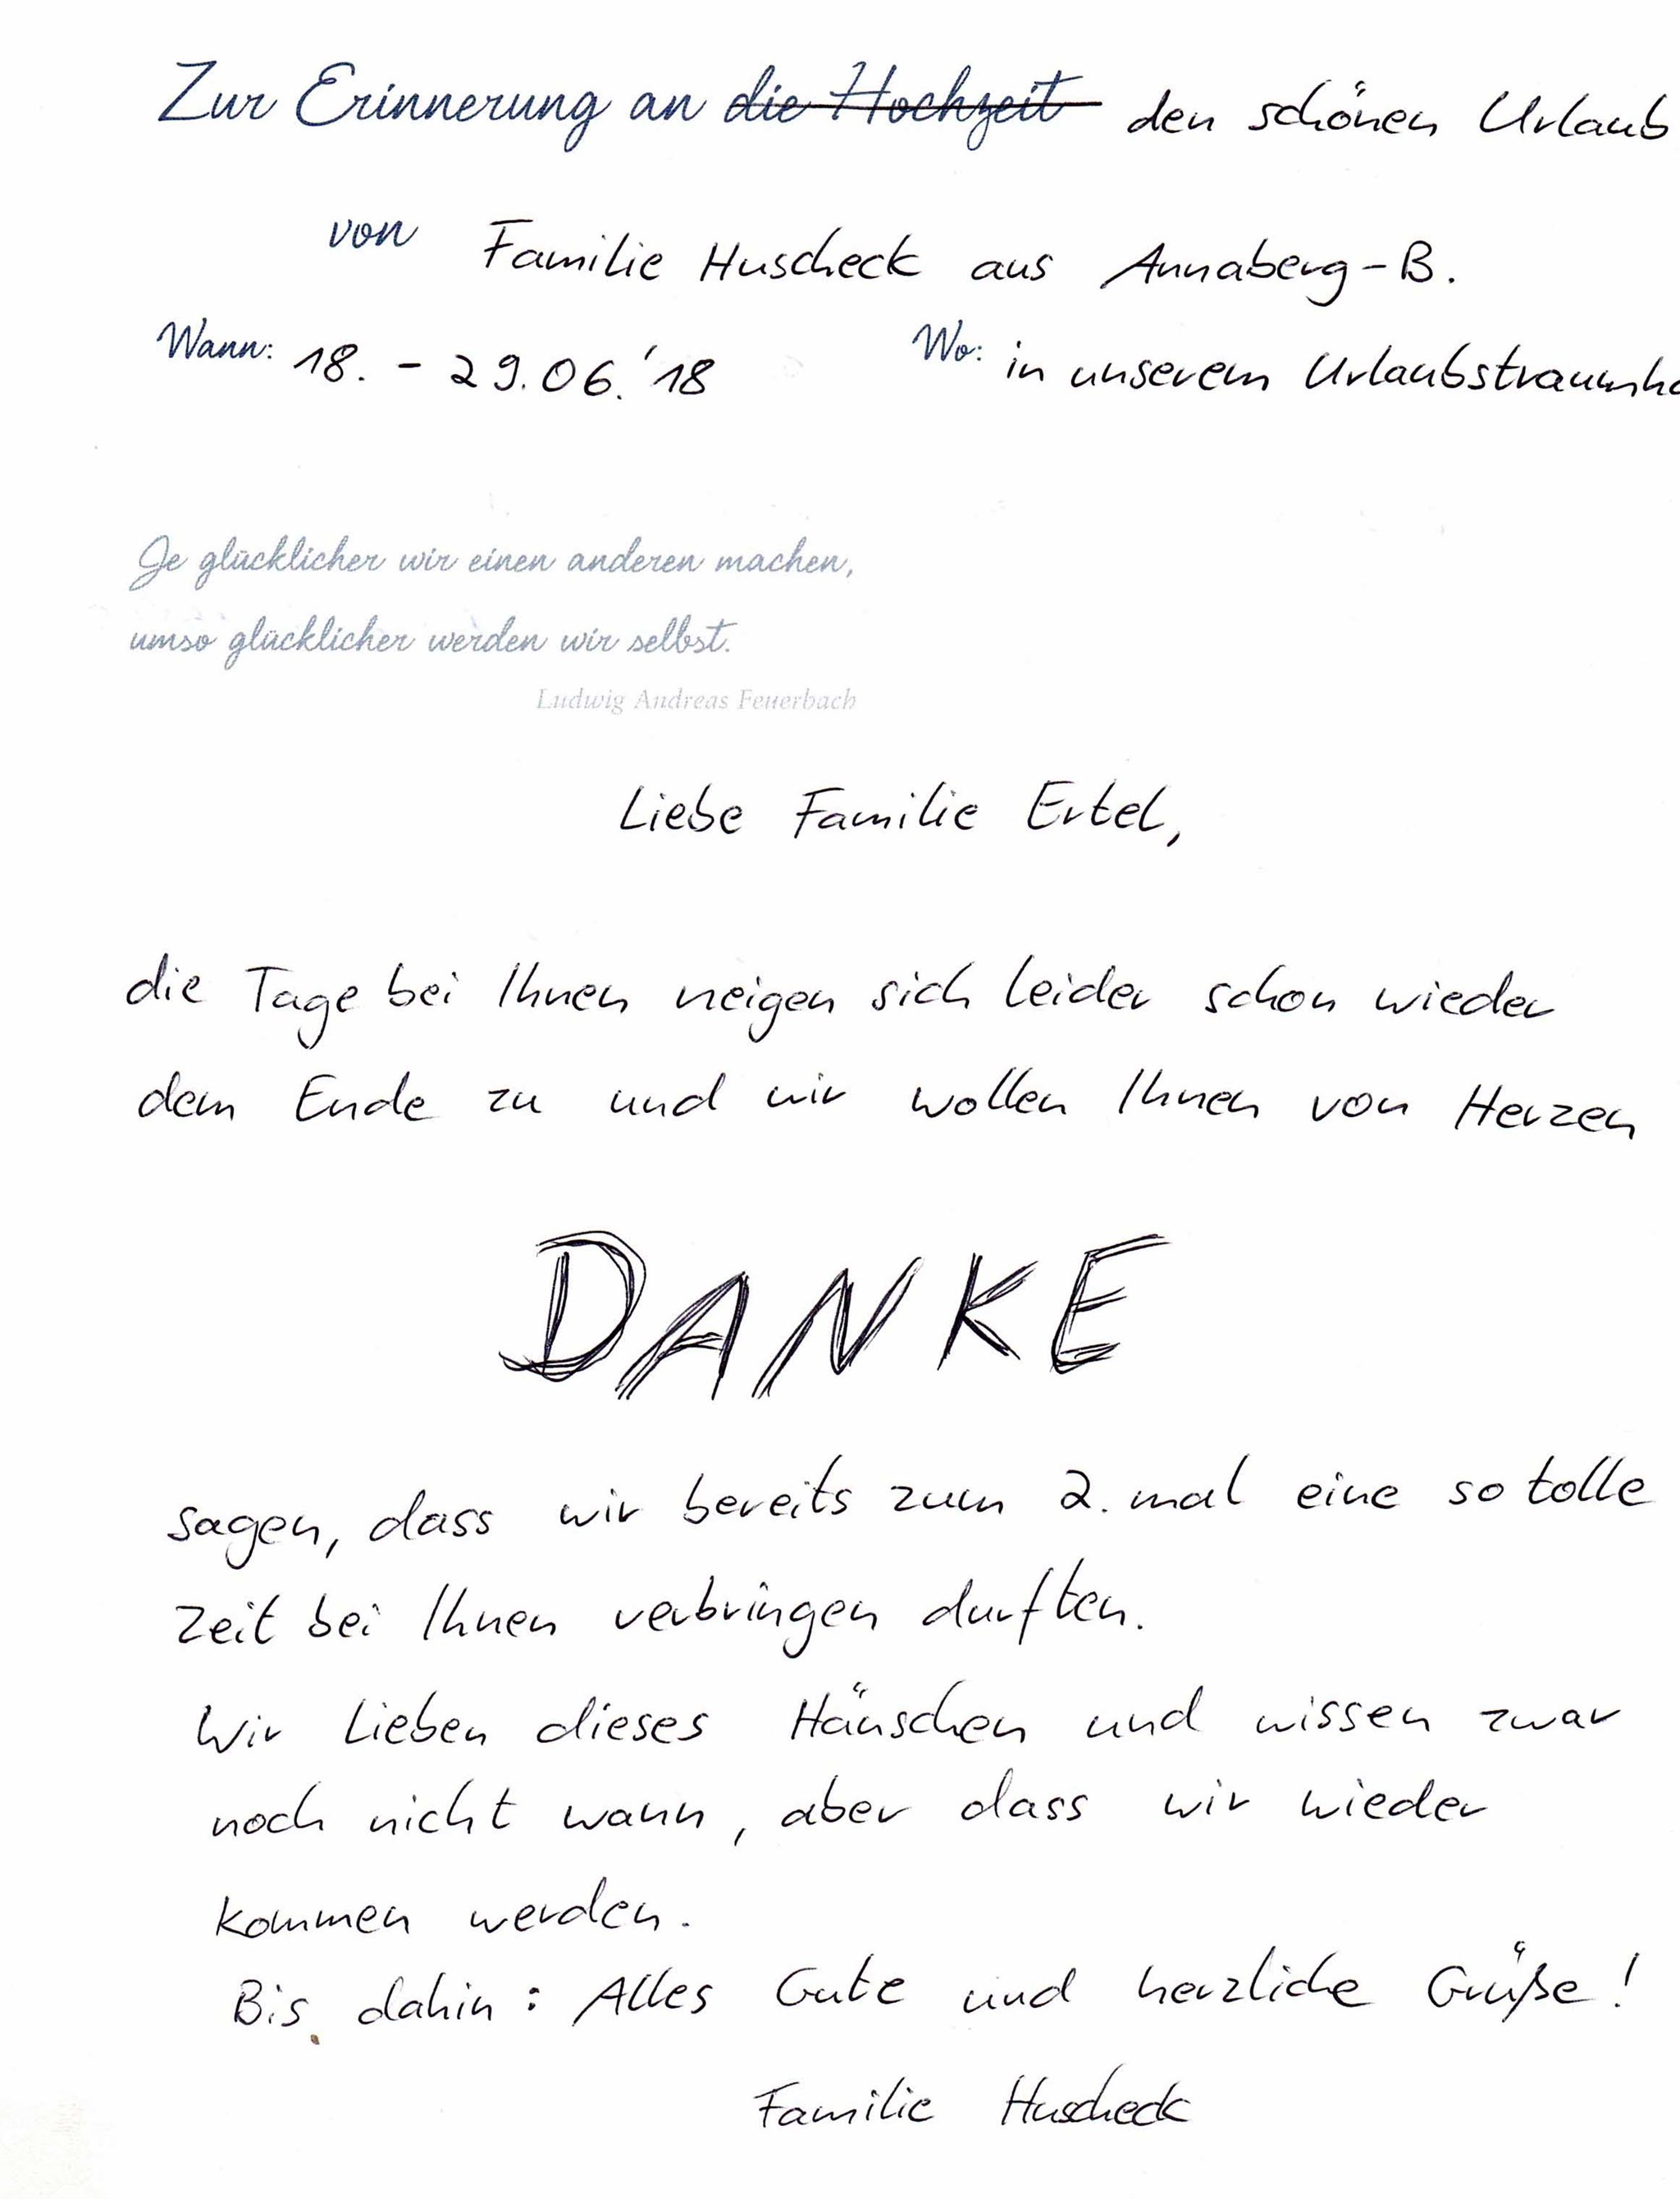 Zur Erinnerung an die Hochzeit den schönen Urlaub
von Familie Huscheck aus Annaberg-B.
Wann: 18. - 29.06.'18 Wo: in unserem
Je glücklicher wir einen anderen machen,
umso glücklicher werden wir selbst.
Ludwig Andreas Feuerbach
Liebe Familie Ertel,
die Tage bei Ihnen neigen sich leider schon wieder
dem Ende zu und wir wollen Ihnen von Herzen
DANKE
sagen, dass wir bereits zum 2. mal eine so tolle
Zeit bei Ihnen verbringen durften.
Wir lieben dieses Häuschen und wissen zwar
noch nicht wann, aber dass wir wieder
kommen werden.
Bis dahin: Alles Gute und herzliche Grüße!
Familie Huscheck